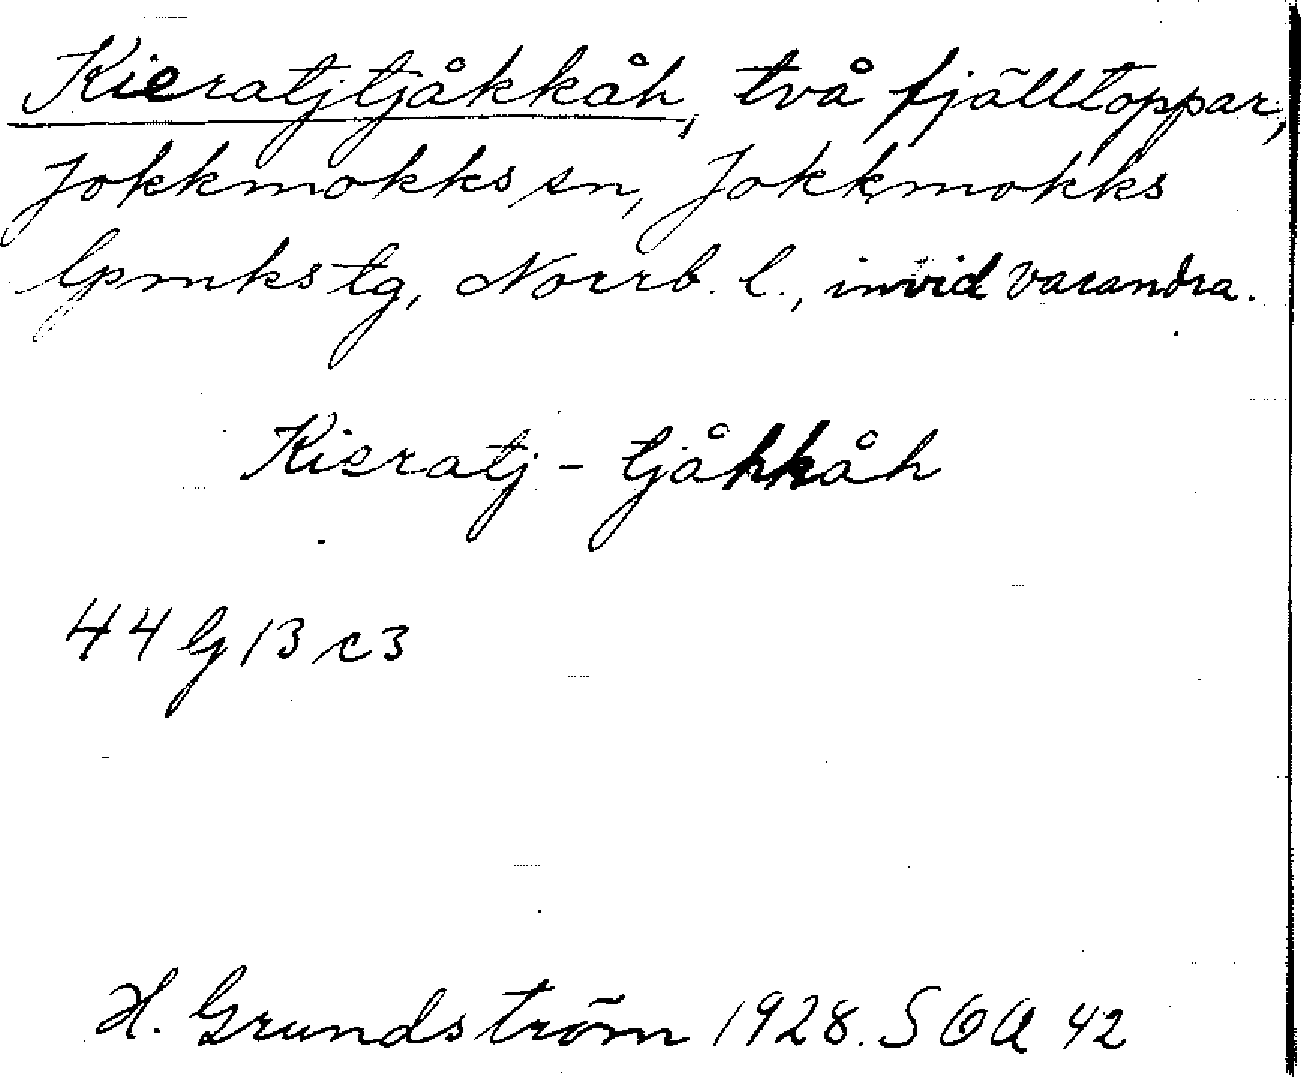 Kieratjtjåkkåh, två fjälltoppar,
Jokkmokks sn, Jokkmokks
lpmkstg, Norrb. l., invid varandra.
Kieratj - tjåhkåh
44 G 13 c 3
H. Grundström 1928. SOA 42